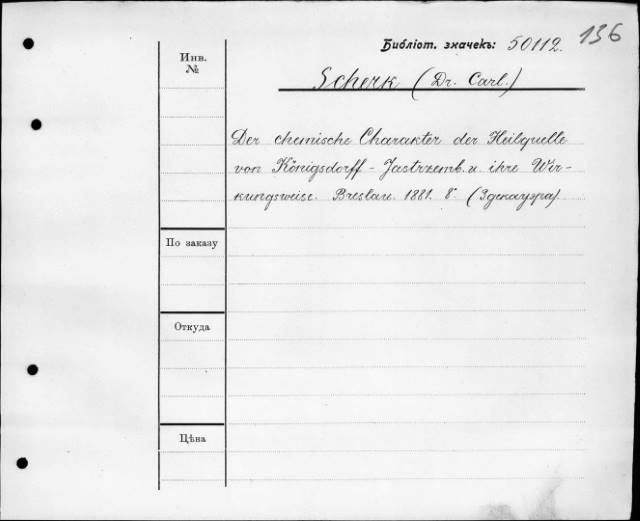 Библіот. значекъ: 50112.
136
Инв.
№
Scherk (Dr. Carl.)
Der chemische Charakter der Heilquelle
von Königsdorff - Jastrzemb. u. ihre Wir-
kungsweise. Breslau. 1881. 8°. (Здекауэра)
По заказу
Откуда
Цѣна